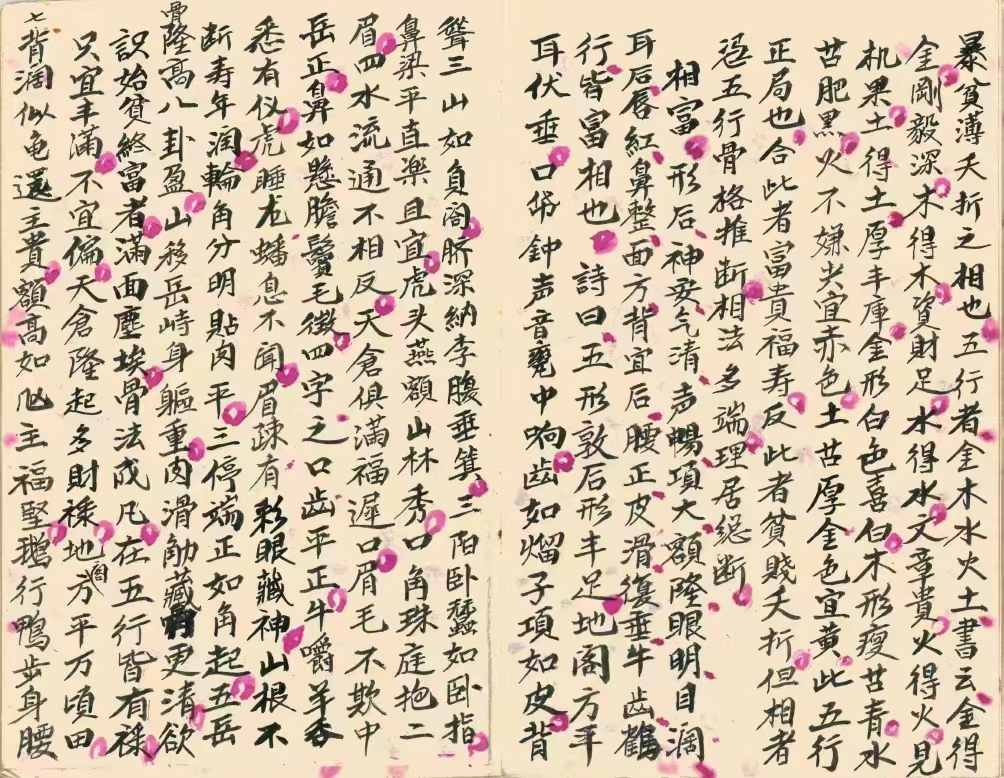 暴貧薄夭折之相也五行者金木水火土書云金得
金剛毅深木得木資財足水得水文章貴火得火見
机果土得土厚丰庫金形白色喜白木形瘦苦青水
苦肥黑火不嫌尖宜赤色土苦厚金色宜黄此五行
正局也合此者富貴福寿反此者貧賤夭折但相者
憑五行骨格推断相法多端理居総断
相富形后神安气清声暢項大額隆眼明目濶
耳后唇紅鼻整面方背宜后腰正皮滑復垂牛齿鶴
行皆富相也詩曰五形敦后形丰足地阁方平
耳伏垂口岱鈡声音甕中响齿如熘子項如皮背
聳三山如負阁脐深納李腹垂箕三阳卧蚕如卧指
鼻梁平直楽且宜虎头燕額山林秀口角珠庭抱二
眉四水流通不相反天倉俱滿福遲口眉毛不欺中
岳正鼻如懸膽鬢毛徴四字之口齿平正牛嚼羊香
悉有仪虎睡龙蟠息不闻眉疎有彩眼藏神山根不
断寿年润輪角分明貼肉平三停端正如角起五岳
骨隆髙八卦盈山移岳峙身軀重肉滑觔藏更清欲
識始貧終富者滿面塵埃骨法成凡在五行皆有祿
只宜丰滿不宜偏天倉隆起多財祿地阁方平万頃田
七背濶似龟還主貴額高如凸主福堅鵝行鴨步身腰